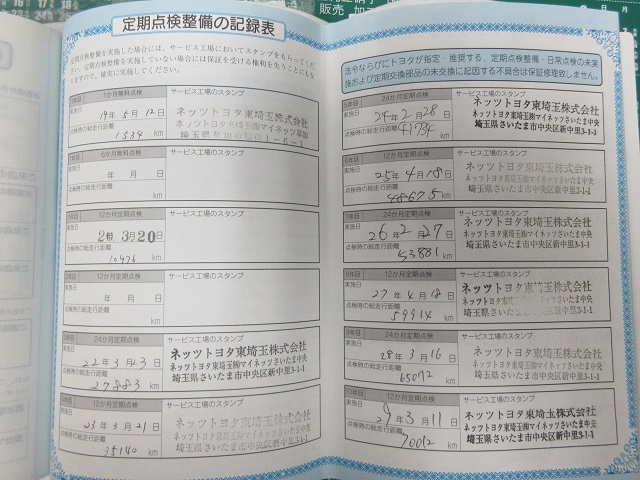 定期点検整備の記録表
定期点検整備を実施した場合には、サービス工場においてスタンプをもらってください。定期点検整備を実施していない場合には保証を受ける権利を失うことにもなりますので、確実に実施してください。
1か月無料点検
サービス工場のスタンプ
実施日
19年 5月 12日
点検時の総走行距離
1534 km
6か月無料点検
サービス工場のスタンプ
実施日
年 月 日
点検時の総走行距離
km
12か月定期点検
サービス工場のスタンプ
実施日
3月20日
点検時の総走行距離
10476 km
12か月定期点検
サービス工場のスタンプ
実施日
年 月 日
点検時の総走行距離
km
24か月定期点検
サービス工場のスタンプ
実施日
22年 3月 23日
点検時の総走行距離
27883 km
ネッツトヨタ東埼玉株式会社
ネッツトヨタ東埼玉㈱マイネッツさいたま中央
埼玉県さいたま市中央区新中里3-1-1
12か月定期点検
サービス工場のスタンプ
実施日
23年 3月 21日
点検時の総走行距離
35140 km
ネッツトヨタ東埼玉株式会社
ネッツトヨタ東埼玉㈱マイネッツさいたま中央
埼玉県さいたま市中央区新中里3-1-1
法令ならびにトヨタが指定・推奨する、定期点検整備・日常点検の未実施および定期交換部品の未交換に起因する不具合は保証修理致しません。
5年目
24か月定期点検
サービス工場のスタンプ
実施日
24年 2月 28日
点検時の総走行距離
41734 km
ネッツトヨタ東埼玉株式会社
ネッツトヨタ東埼玉㈱マイネッツさいたま中央
埼玉県さいたま市中央区新中里3-1-1
6年目
12か月定期点検
サービス工場のスタンプ
実施日
25年 4月 18日
点検時の総走行距離
48675 km
ネッツトヨタ東埼玉株式会社
ネッツトヨタ東埼玉㈱マイネッツさいたま中央
埼玉県さいたま市中央区新中里3-1-1
7年目
24か月定期点検
サービス工場のスタンプ
実施日
26年 2月 27日
点検時の総走行距離
53881 km
ネッツトヨタ東埼玉株式会社
ネッツトヨタ東埼玉㈱マイネッツさいたま中央
埼玉県さいたま市中央区新中里3-1-1
8年目
12か月定期点検
サービス工場のスタンプ
実施日
27年 4月 18日
点検時の総走行距離
59914 km
ネッツトヨタ東埼玉株式会社
埼玉県さいたま市中央区新中里3-1-1
9年目
24か月定期点検
サービス工場のスタンプ
実施日
28年 3月 16日
点検時の総走行距離
65072 km
ネッツトヨタ東埼玉株式会社
ネッツトヨタ東埼玉㈱マイネッツさいたま中央
埼玉県さいたま市中央区新中里3-1-1
10年目
12か月定期点検
サービス工場のスタンプ
実施日
29年 3月 11日
点検時の総走行距離
70012 km
ネッツトヨタ東埼玉株式会社
ネッツトヨタ東埼玉㈱マイネッツさいたま中央
埼玉県さいたま市中央区新中里3-1-1